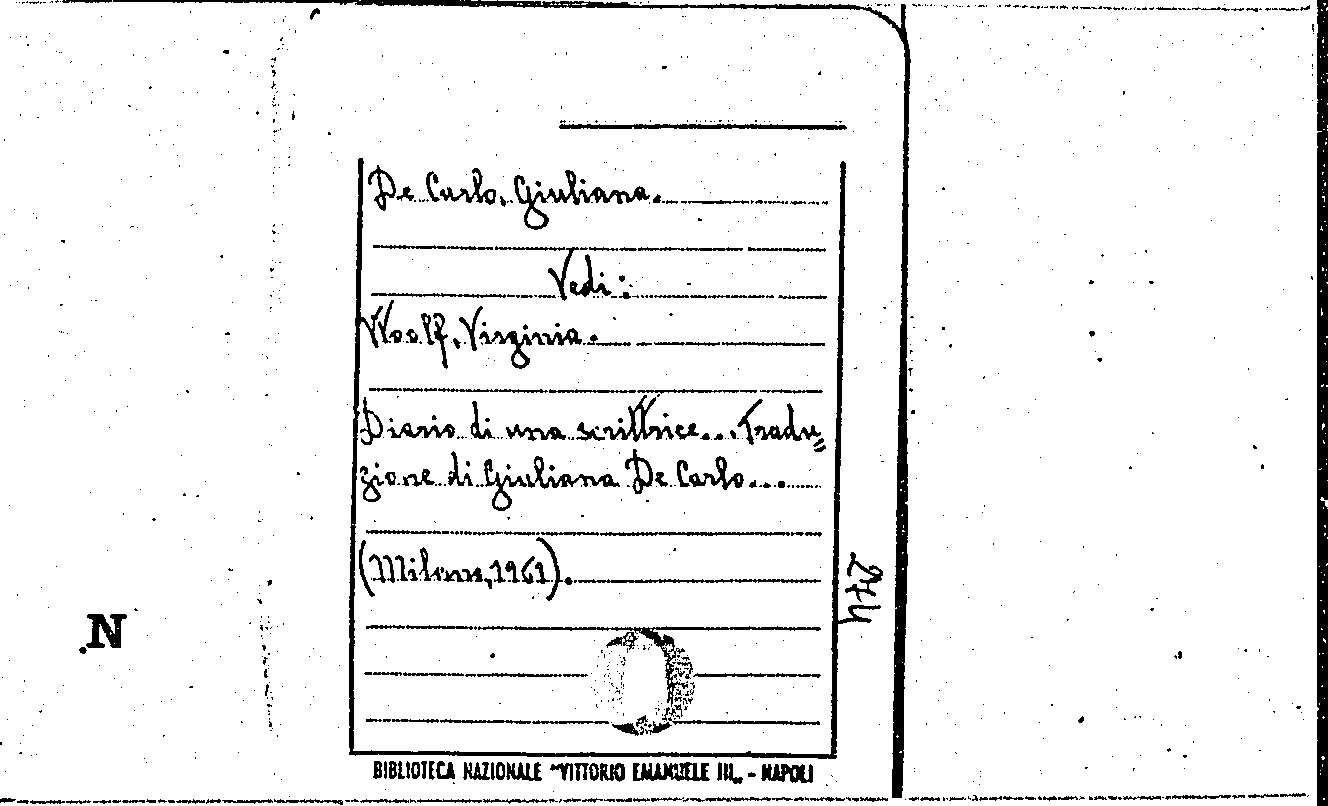 De Carlo, Giuliana.
Vedi:
Woolf, Virginia.
Diario di una scrittrice... Tradu=
zione di Giuliana De Carlo...
(Milano, 1961).
274
N
BIBLIOTECA NAZIONALE "VITTORIO EMANUELE III„ - NAPOLI